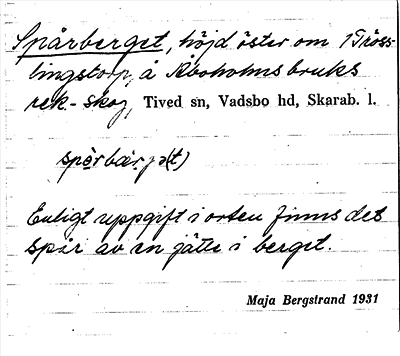 Spårberget, höjd öster om 1 Tröss-
lingstorp, å Åboholms bruks
rek-skog, Tived sn, Vadsbo hd, Skarab. l.
spɵ̄rbàrjə(t)
Enligt uppgift i orten finns det
spår av en jätte i berget.
Maja Bergstrand 1931